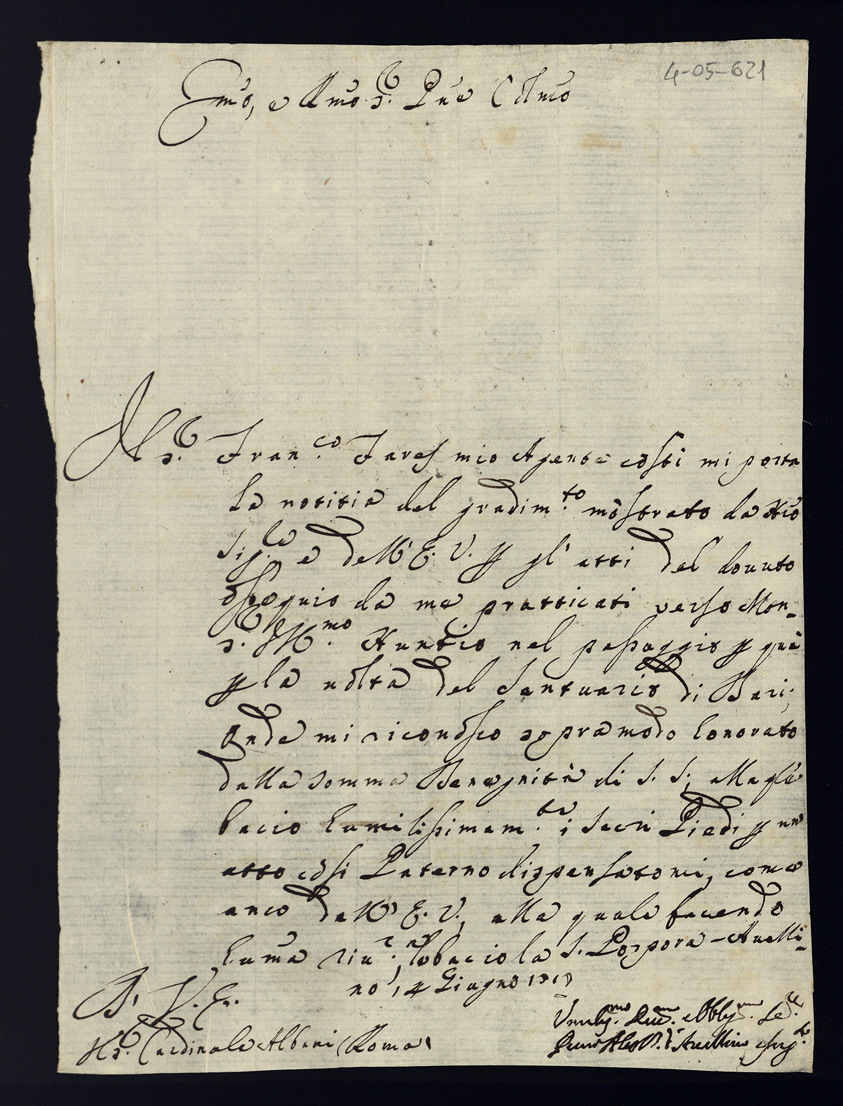 4-05-621
Emo, e Rmo Sr. Pne Colmo
Il Sr. Fran.co Fares mio Agente costì mi porta
la notitia del gradim.to mostrato da Nro
Sig.re e dall' E. V. p gl' atti del dovuto
ossequio da me pratticati verso Mon-
Sr. Ill.mo Nuntio nel passaggio p quà
p la volta del Santuario di Bari;
onde mi riconosco sopramodo honorato
dalla somma Benegnità di S. S., alla qle
bacio humilissimam.te i Sacri Piedi p un
atto così Paterno dispensatomi, come
anco dall' E. V., alla quale facendo
huma riv.za bacio la S. Porpora - Avelli-
no, 4 Giugno
D. V. Em.
Sr. Cardinale Albani Roma
Umilis.mo Dev.mo e Obblig.mo Se.re
d' Avellino